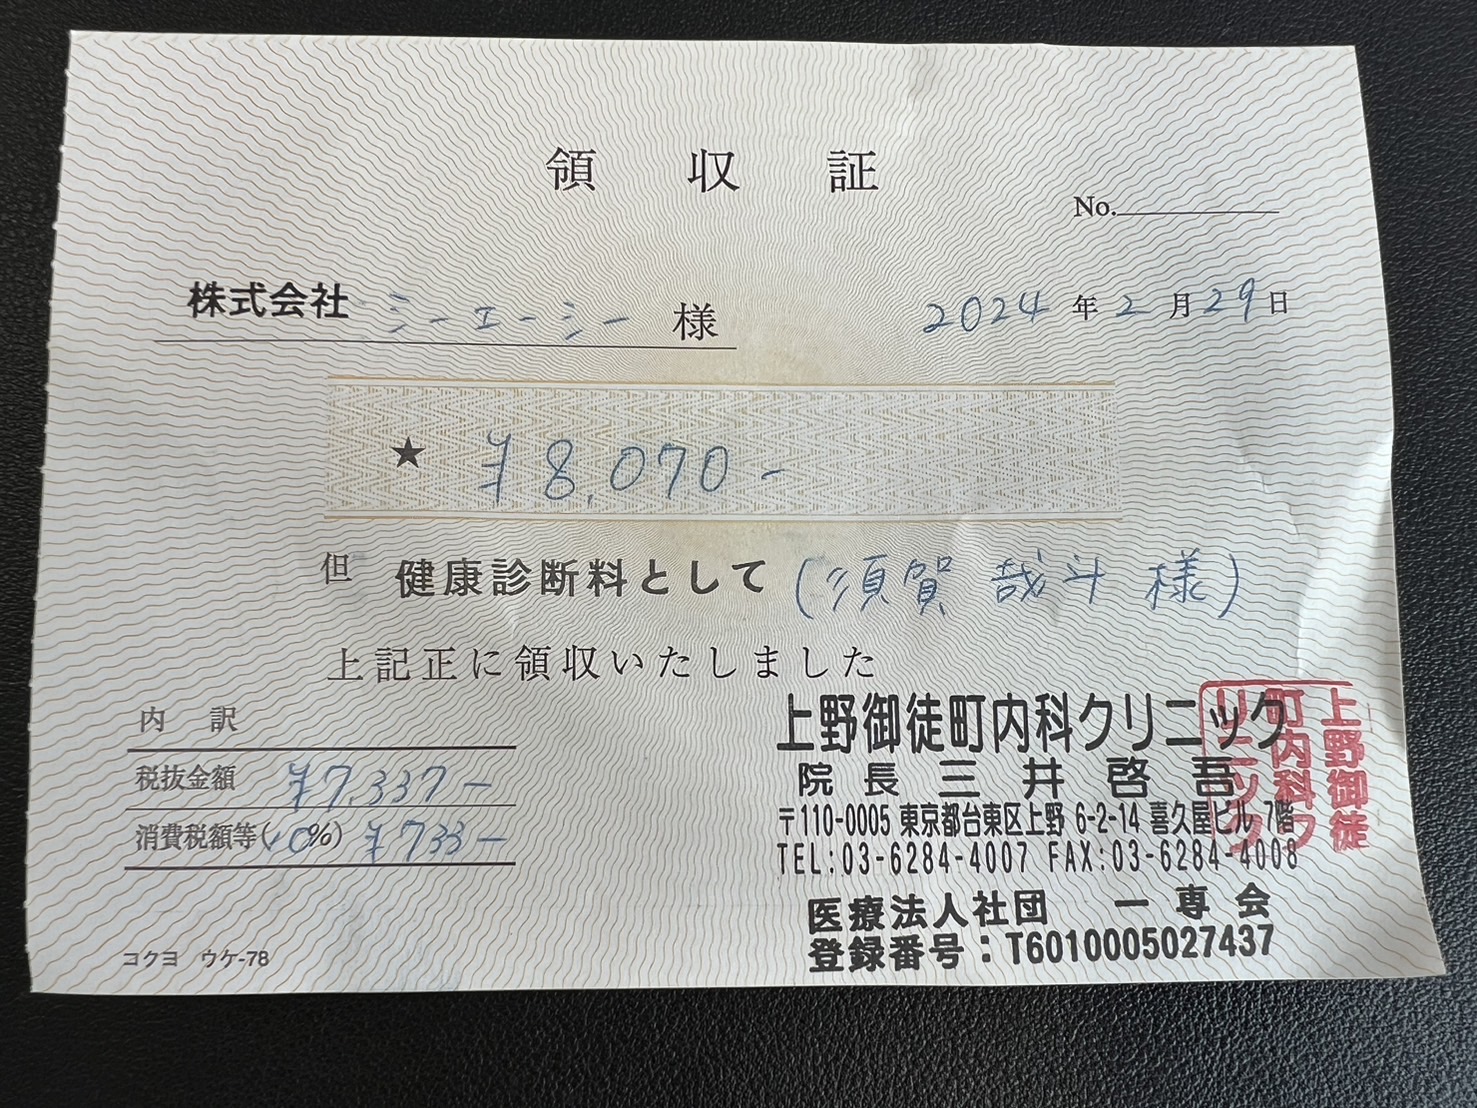 領収証
No.
株式会社 シーエーシー 様
2024年2月29日
★ ¥8,070-
但 健康診断料として(須賀 哉斗 様)
上記正に領収いたしました
内訳
税抜金額 ¥7,337-
消費税額等(10%) ¥733-
コクヨ ウケ-78
上野御徒町内科クリニック
院長 三井啓吾
〒110-0005 東京都台東区上野 6-2-14 喜久屋ビル 7階
TEL:03-6284-4007 FAX:03-6284-4008
医療法人社団 一専会
登録番号:T6010005027437
上野御徒
町内科ク
リニック